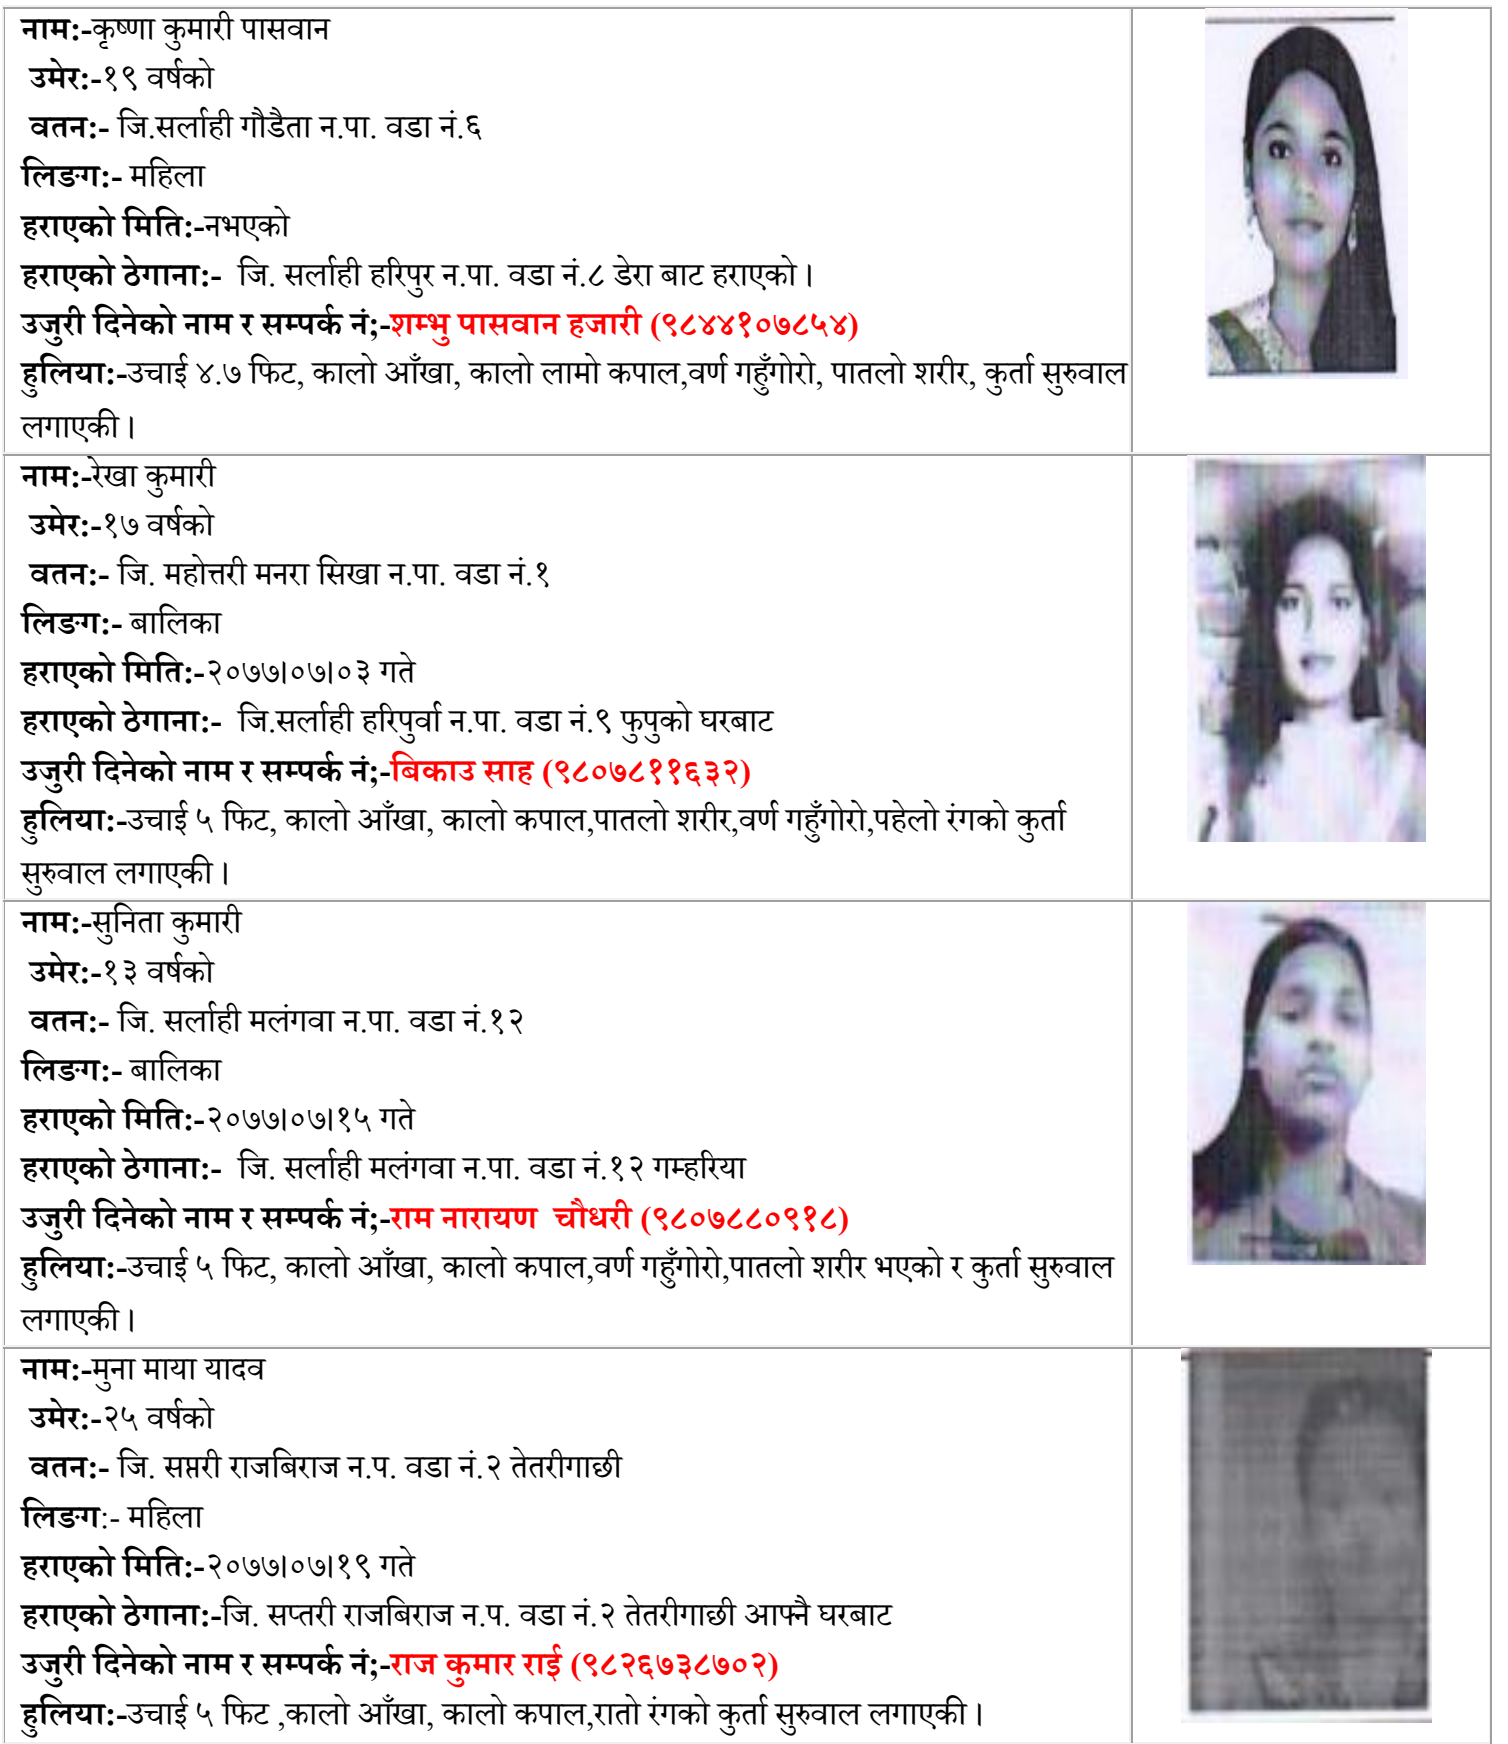 नाम:-कृष्णा कुमारी पासवान
उमेर:-१९ वर्षको
वतन:- जि.सर्लाही गौडैता न.पा. वडा नं.६
लिङग:- महिला
हराएको मिति:-नभएको
हराएको ठेगाना:- जि. सर्लाही हरिपुर न.पा. वडा नं.८ डेरा बाट हराएको।
उजुरी दिनेको नाम र सम्पर्क नं;-शम्भु पासवान हजारी (९८४४१०७८५४)
हुलिया:-उचाई ४.७ फिट, कालो आँखा, कालो लामो कपाल,वर्ण गहुँगोरो, पातलो शरीर, कुर्ता सुरुवाल
लगाएकी।
नाम:-रेखा कुमारी
उमेर:-१७ वर्षको
वतन:- जि. महोत्तरी मनरा सिखा न.पा. वडा नं.१
लिङग:- बालिका
हराएको मिति:-२०७७।०७।०३ गते
हराएको ठेगाना:- जि.सर्लाही हरिपुर्वा न.पा. वडा नं.९ फुपुको घरबाट
उजुरी दिनेको नाम र सम्पर्क नं;-बिकाउ साह (९८०७८११६३२)
हुलिया:-उचाई ५ फिट, कालो आँखा, कालो कपाल,पातलो शरीर,वर्ण गहुँगोरो,पहेलो रंगको कुर्ता
सुरुवाल लगाएकी।
नाम:-सुनिता कुमारी
उमेर:-१३ वर्षको
वतन:- जि. सर्लाही मलंगवा न.पा. वडा नं.१२
लिङग:- बालिका
हराएको मिति:-२०७७।०७।१५ गते
हराएको ठेगाना:- जि. सर्लाही मलंगवा न.पा. वडा नं.१२ गम्हरिया
उजुरी दिनेको नाम र सम्पर्क नं;-राम नारायण चौधरी (९८०७८८०९१८)
हुलिया:-उचाई ५ फिट, कालो आँखा, कालो कपाल,वर्ण गहुँगोरो,पातलो शरीर भएको र कुर्ता सुरुवाल
लगाएकी।
नाम:-मुना माया यादव
उमेर:-२५ वर्षको
वतन:- जि. सप्तरी राजबिराज न.प. वडा नं.२ तेतरीगाछी
लिङग:- महिला
हराएको मिति:-२०७७।०७।१९ गते
हराएको ठेगाना:-जि. सप्तरी राजबिराज न.प. वडा नं.२ तेतरीगाछी आफ्नै घरबाट
उजुरी दिनेको नाम र सम्पर्क नं;-राज कुमार राई (९८२६७३८७०२)
हुलिया:-उचाई ५ फिट ,कालो आँखा, कालो कपाल,रातो रंगको कुर्ता सुरुवाल लगाएकी।